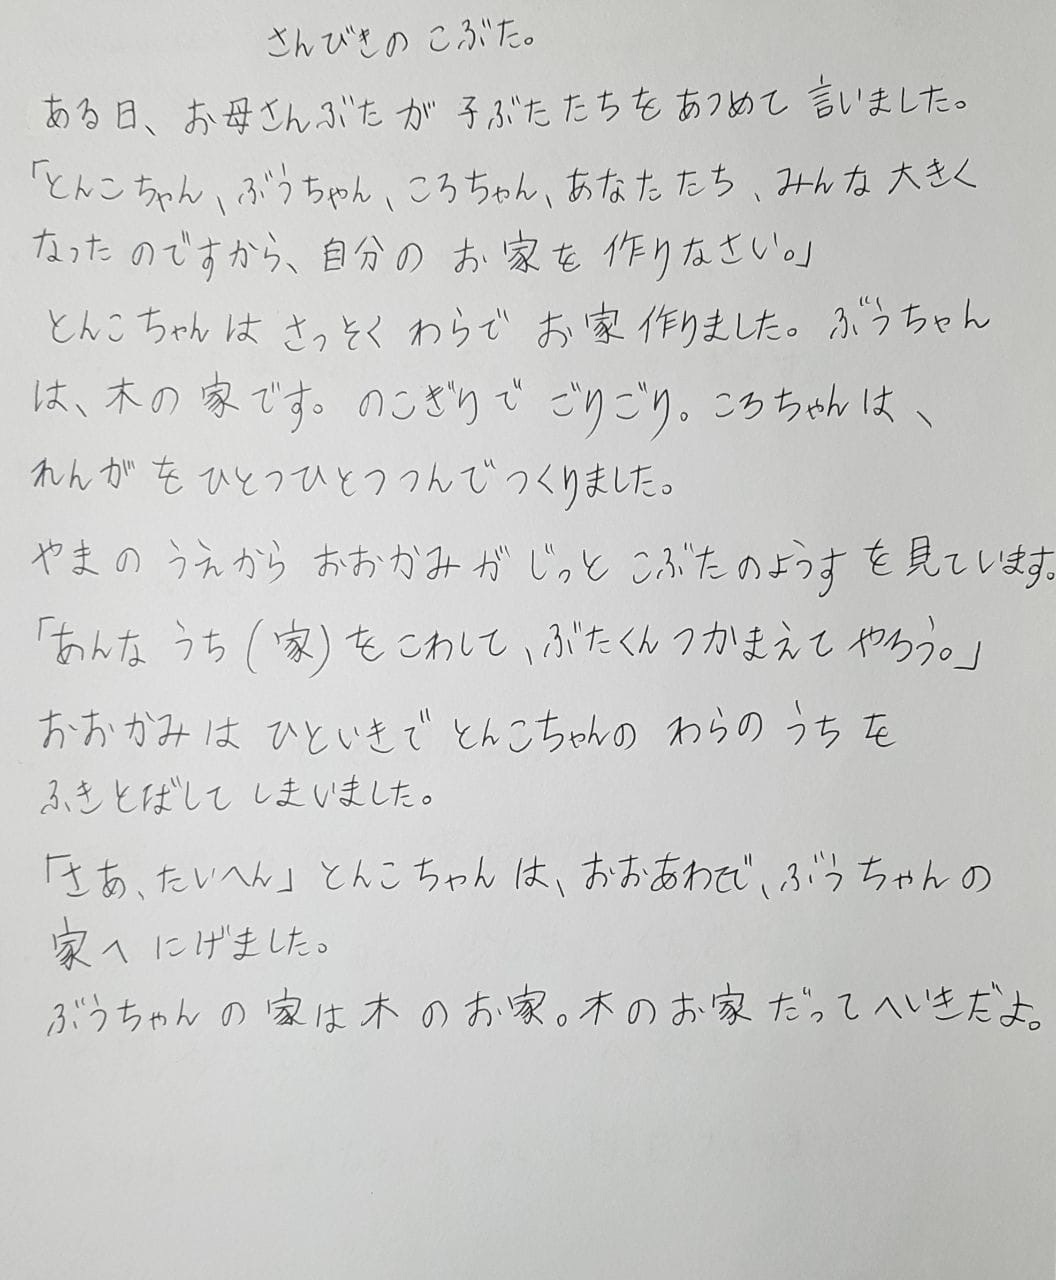 さんびきの こぶた。
ある日、お母さんぶたが 子ぶたたちを あつめて 言いました。
「とんこちゃん、ぶうちゃん、ころちゃん、あなたたち、みんな 大きく
なったのですから、自分の お家を 作りなさい。」
とんこちゃんは さっそく わらで お家 作りました。ぶうちゃん
は、木の 家です。のこぎりで ごりごり。ころちゃんは、
れんがを ひとつひとつつんでつくりました。
やまの うえから おおかみが じっと こぶたのようすを見ています。
「あんな うち(家)を こわして、ぶたくんつかまえて やろう。」
おおかみは ひといきで とんこちゃんの わらの うちを
ふきとばして しまいました。
「さあ、たいへん」とんこちゃんは、おおあわてで、ぶうちゃんの
家へ にげました。
ぶうちゃんの 家は木のお家。木のお家だってへいきだよ。